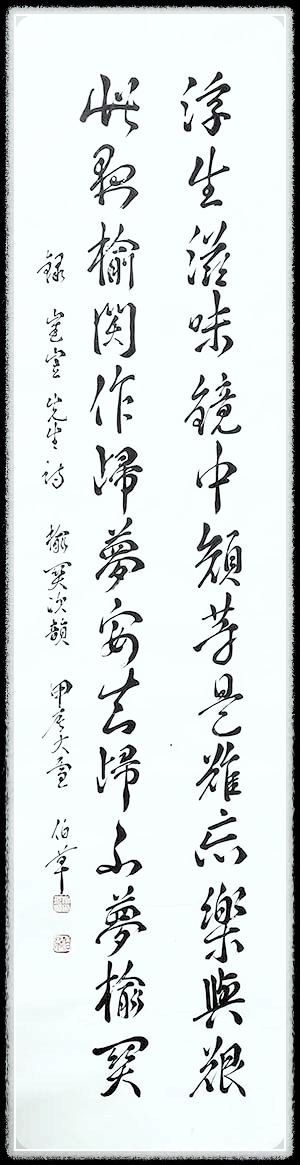 浮生滋味鏡中顏等是難忘樂與艱
此夜榆関作歸夢安去歸不夢榆関
錄 先生詩 榆関次韻 甲辰大雪 伯草